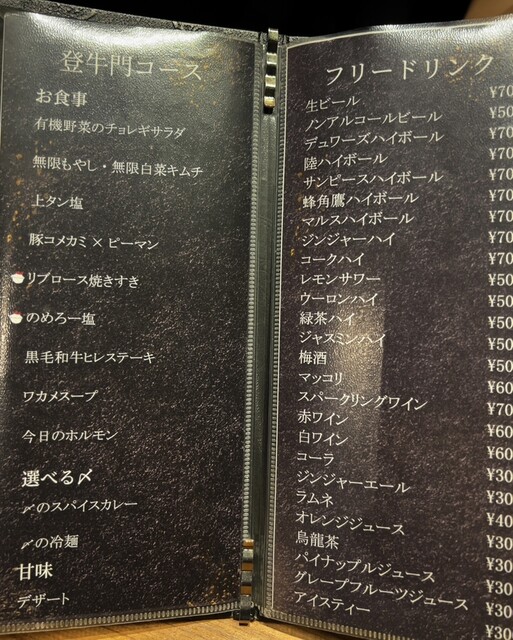 登牛門コース
お食事
有機野菜のチョレギサラダ
無限もやし・無限白菜キムチ
上タン塩
豚コメカミ×ピーマン
リブロース焼きすき
のめろー塩
黒毛和牛ヒレステーキ
ワカメスープ
今日のホルモン
選べる〆
〆のスパイスカレー
〆の冷麺
甘味
デザート
フリードリンク
生ビール ¥70
ノンアルコールビール ¥50
デュワーズハイボール ¥70
陸ハイボール ¥70
サンピースハイボール ¥70
蜂角鷹ハイボール ¥70
マルスハイボール ¥70
ジンジャーハイ ¥70
コークハイ ¥70
レモンサワー ¥50
ウーロンハイ ¥50
緑茶ハイ ¥50
ジャスミンハイ ¥50
梅酒 ¥50
マッコリ ¥60
スパークリングワイン ¥70
赤ワイン ¥60
白ワイン ¥60
コーラ ¥30
ジンジャーエール ¥30
ラムネ ¥40
オレンジジュース ¥30
烏龍茶 ¥30
パイナップルジュース ¥30
グレープフルーツジュース ¥30
アイスティー ¥30